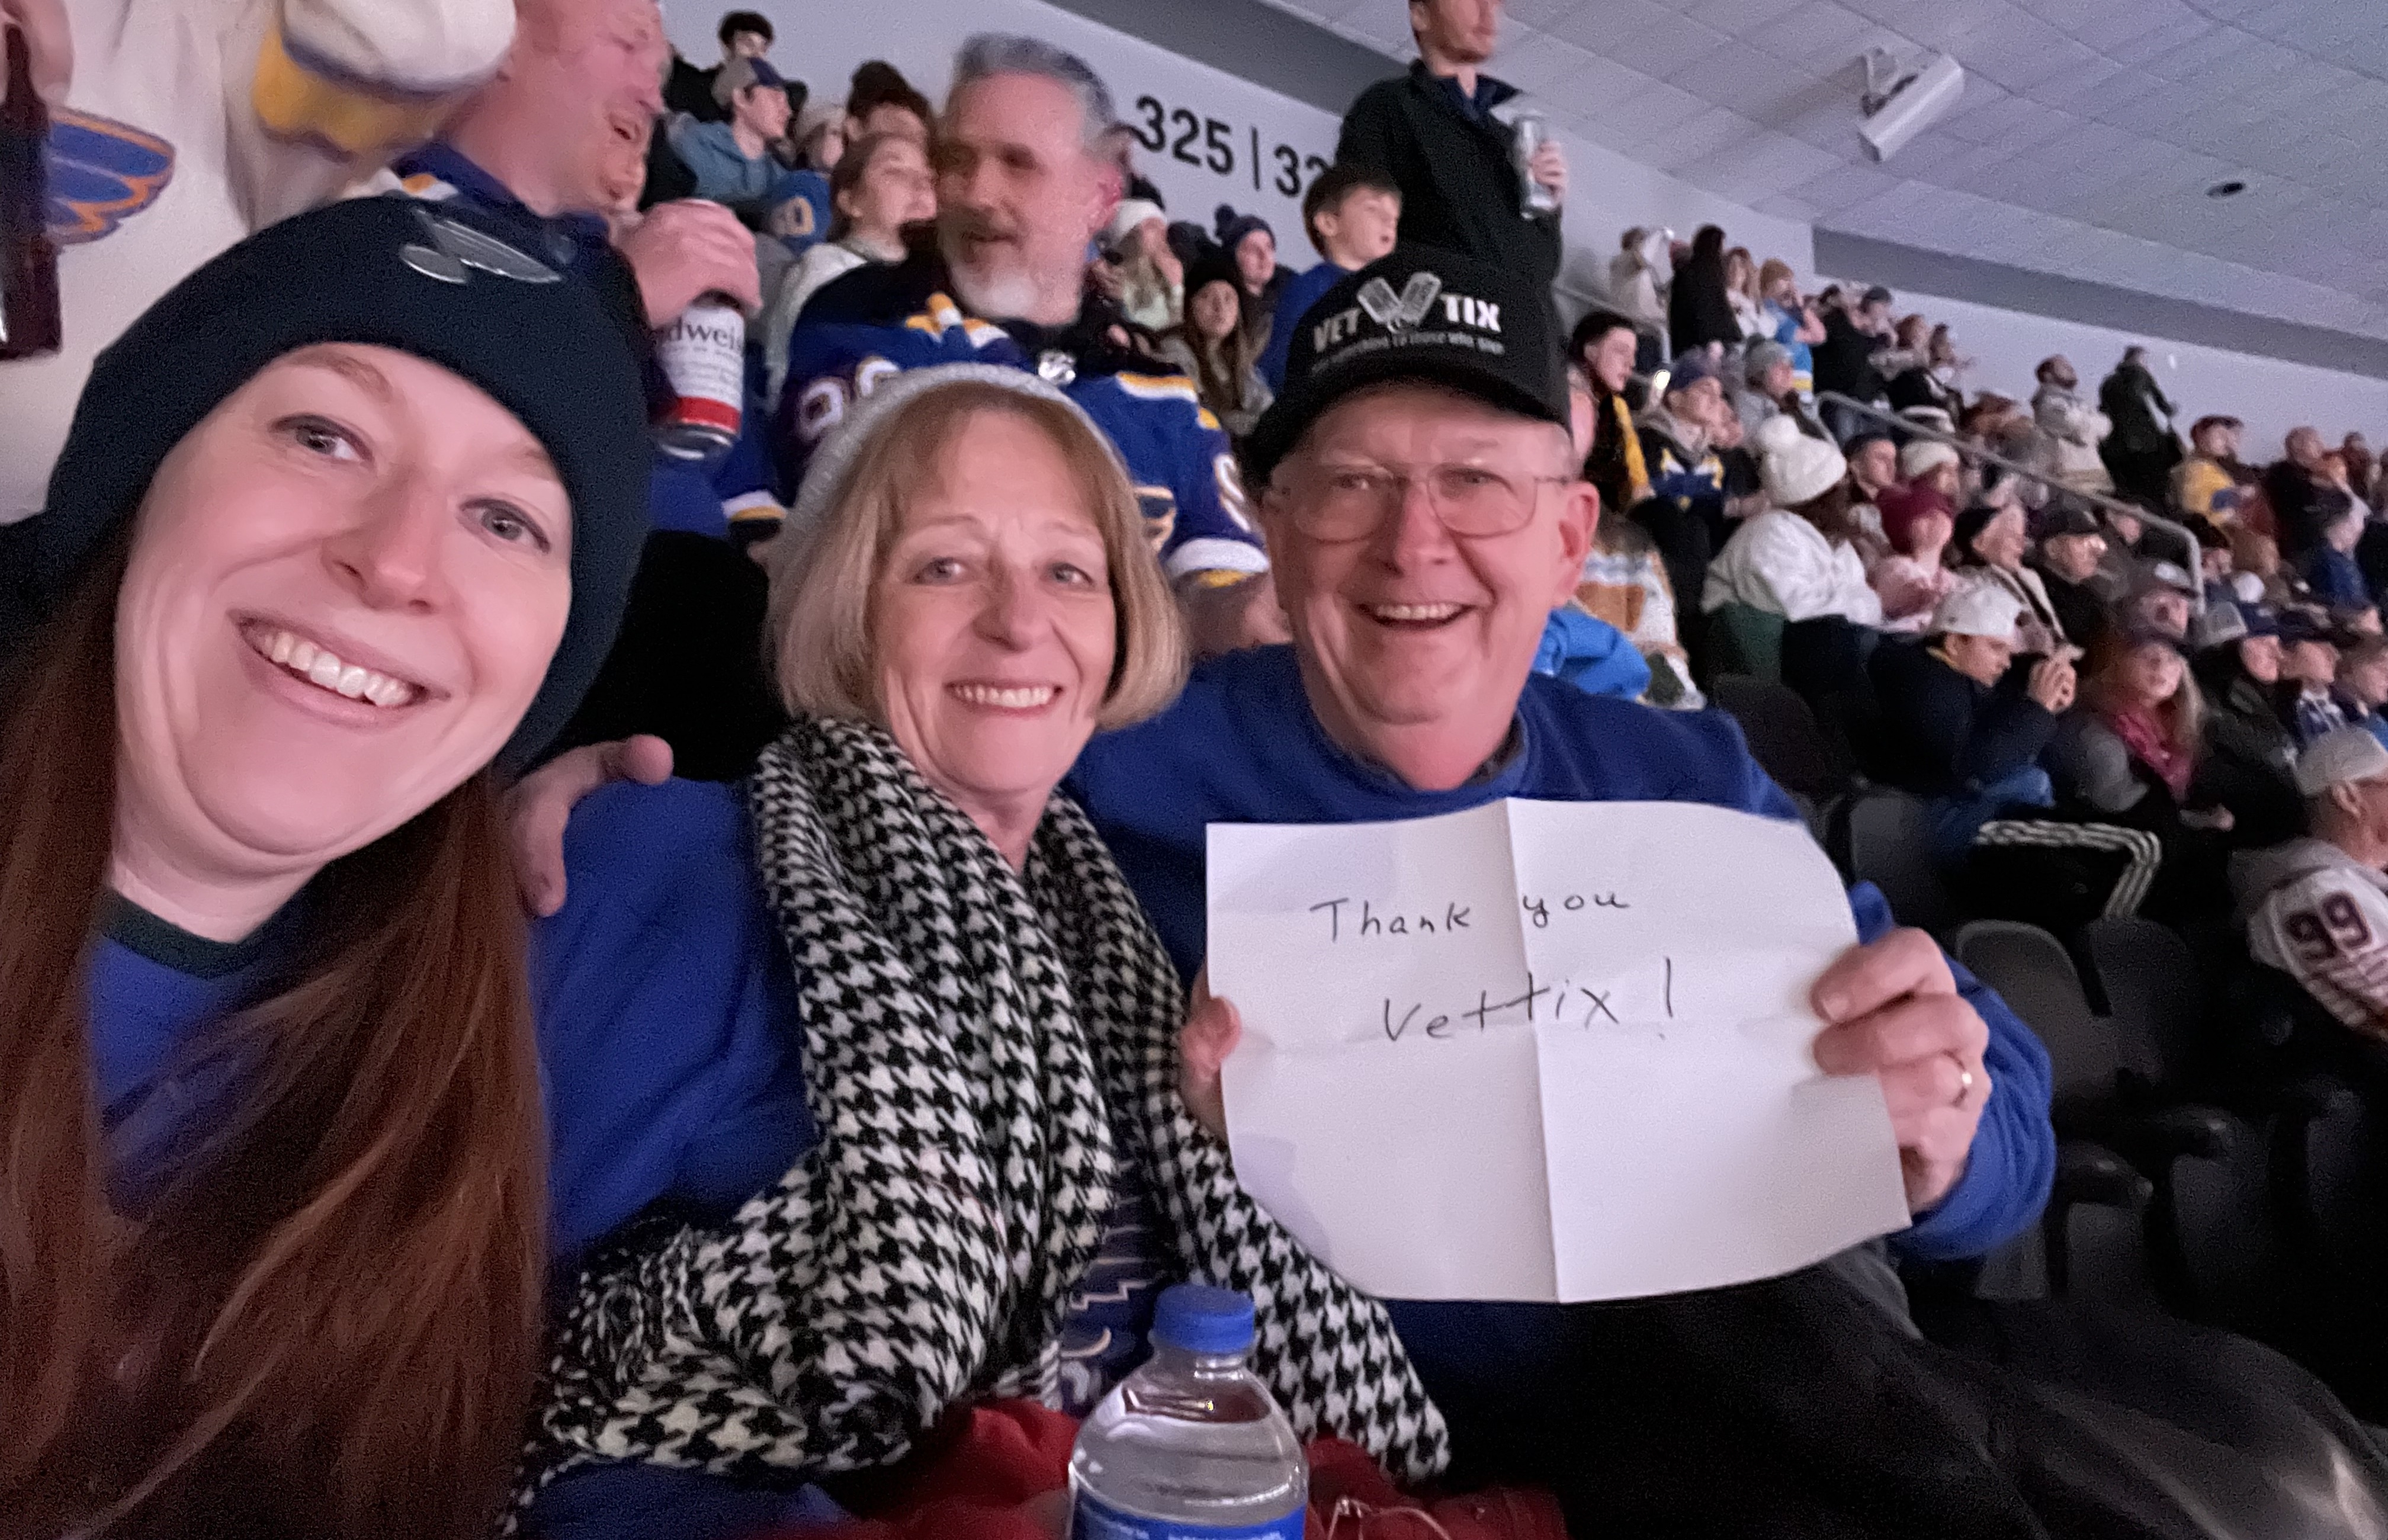 325 | 32
VET TIX
dweis
Thank you
Vettix!
99